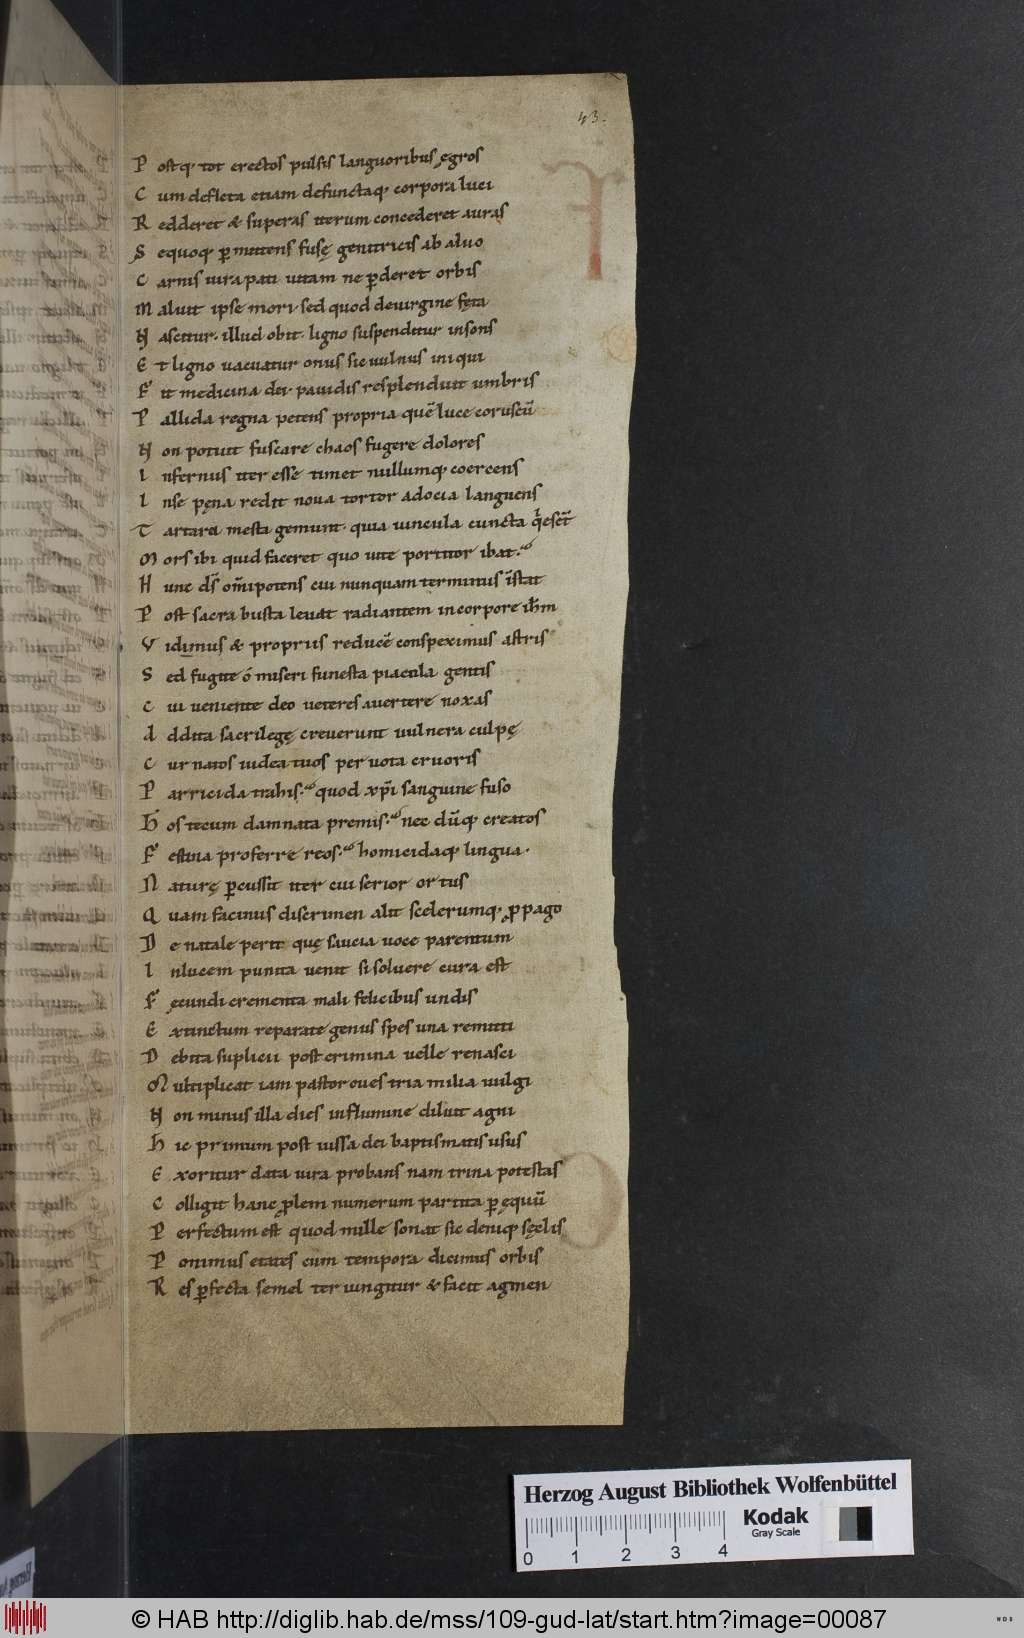 43.
P ostq; tot erectos pulsis languoribus ęgros
C um defleta etiam defunctaq; corpora luci
R edderet & superas iterum concederet auras
S equoq; p̲mittens fusę genitricis ab aluo
C arnis iura pati uitam ne p̲deret orbis
M aluit ipse mori· sed quod deuirgine fęta
N ascitur· illud obit· ligno suspenditur insons
E t ligno uacuatur onus sic uulnus iniqui
F it medicina dei· pauidis resplenduit umbris
P allida regna petens propria quē luce coruscū
N on potuit fuscare chaos fugere dolores
I nfernus iter esse timet nullumq; coercens
I nse pęna redit noua tortor adocia languens
T artara mesta gemunt· quia uincula cuncta
M ors ibi quid faceret quo uite portitor ibat·
H unc ds̄ om̄ipotens cui nunquam terminus īstat
P ost sacra busta leuat radiantem incorpore ih̄m
V idimus & propriis reducē conspeximus astris
S ed fugite ó miseri funesta piacula gentis
C ui ueniente deo ueteres auertere noxas
A ddita sacrilegę creuerunt uulnera culpę
C ur natos iudea tuos per uota cruoris
P arricida trahis· quod xp̄i sanguine fuso
H os tecum damnata premis· nec dūq; creatos
F estina proferre reos· homicidaq; lingua·
N aturę p̲cussit iter cui serior ortus
Q uam facinus discrimen alit scelerumq; p̲pago
D e natale perit quę saucia uoce parentum
I nlucem punita uenit si soluere cura est
F ęcundi crementa mali felicibus undis
E xtinctum reparate genus spes una remitti
D ebita suplicii post crimina uelle renasci
M ultiplicat iam pastor oues tria milia uulgi
N on minus illa dies influmine diluit agni
H ic primum post iussa dei baptismatis usus
E xoritur data iura probans nam trina potestas
C olligit hanc p̲lem numerum partita p̲ęquū
P erfectum est quod mille sonat sic deniq; sęclis
P onimus etates cum tempora dicimus orbis
R es p̲fecta semel ter iungitur & facit agmen
Herzog August Bibliothek Wolfenbüttel
Kodak
Gray Scale
0 1 2 3 4
© HAB http://diglib.hab.de/mss/109-gud-lat/start.htm?image=00087